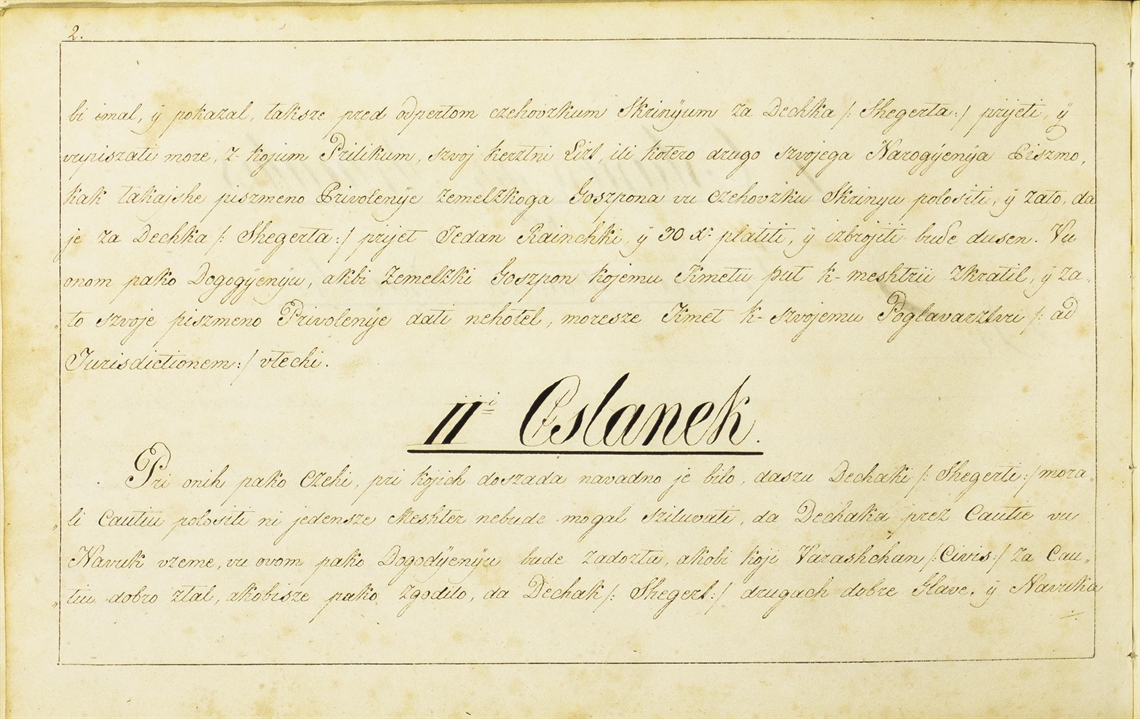 2.
bi imal, ÿ pokazal, taksze pred odpertom czehovzkum Skrinyum za Dechka /: Shegerta:/ prijeti, ÿ
vupiszati more, z-kojum Prilikum, szvoj kerztni Lizt, ili kotero drugo szvojega Narogyenya Piszmo,
kak takajshe piszmeno Privolenÿe zemelzkoga Goszpona vu czehovzku Skrinyu polositi, ÿ zato, da
je za Dechka /: Shegerta:/ prijet Jedan Rainchki, ÿ 30 xr platiti, ÿ izbrojiti bude dusen. Vu
onom pako Dogogyenyu, akbi Zemelzki Goszpon kojemu Kmetu put k-meshtrii zkratil, ÿ za-
to szvoje piszmeno Privolenÿe dati nehotel, moresze Kmet k-szvojemu Poglavarztvu /: ad
Jurisdictionem:/ vtechi.
IIi Czlanek.
Pri onih pako Czehi, pri kojich doszada navadno je bilo, daszu Dechaki /: Shegerti:/ mora-
li Cautiu polositi ni jedensze Meshter nebude mogal sziluvati, da Dechaka prez Cautie vu
Navuk vzeme, vu ovom pako Dogodyenyu bude zadozta, akobi koji Varashchan /: Civis:/ za Cau-
tiu dobro ztal, akobisze pako zgodilo, da Dechak /: Shegert:/ drugach dobre Glave, ÿ Navuka